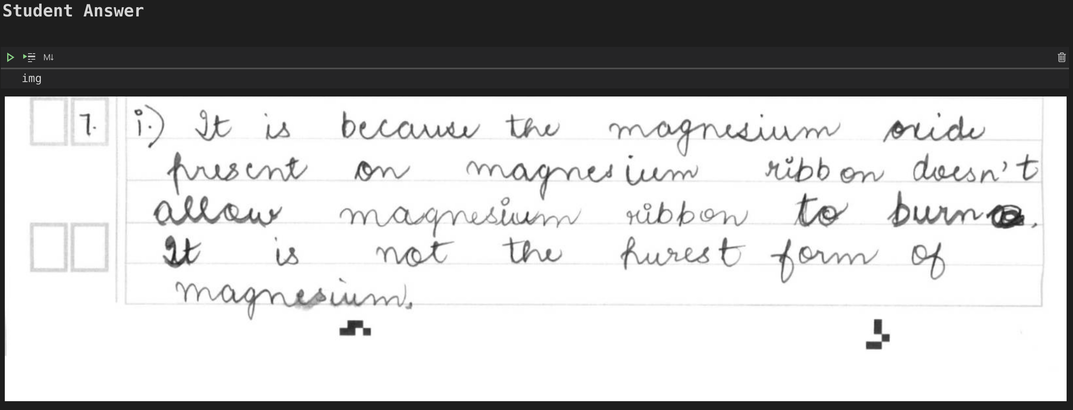 Student Answer
M↓
img
7. i.) It is because the magnesium oxide
present on magnesium ribbon doesn't
allow magnesium ribbon to burn.
It is not the purest form of
magnesium.